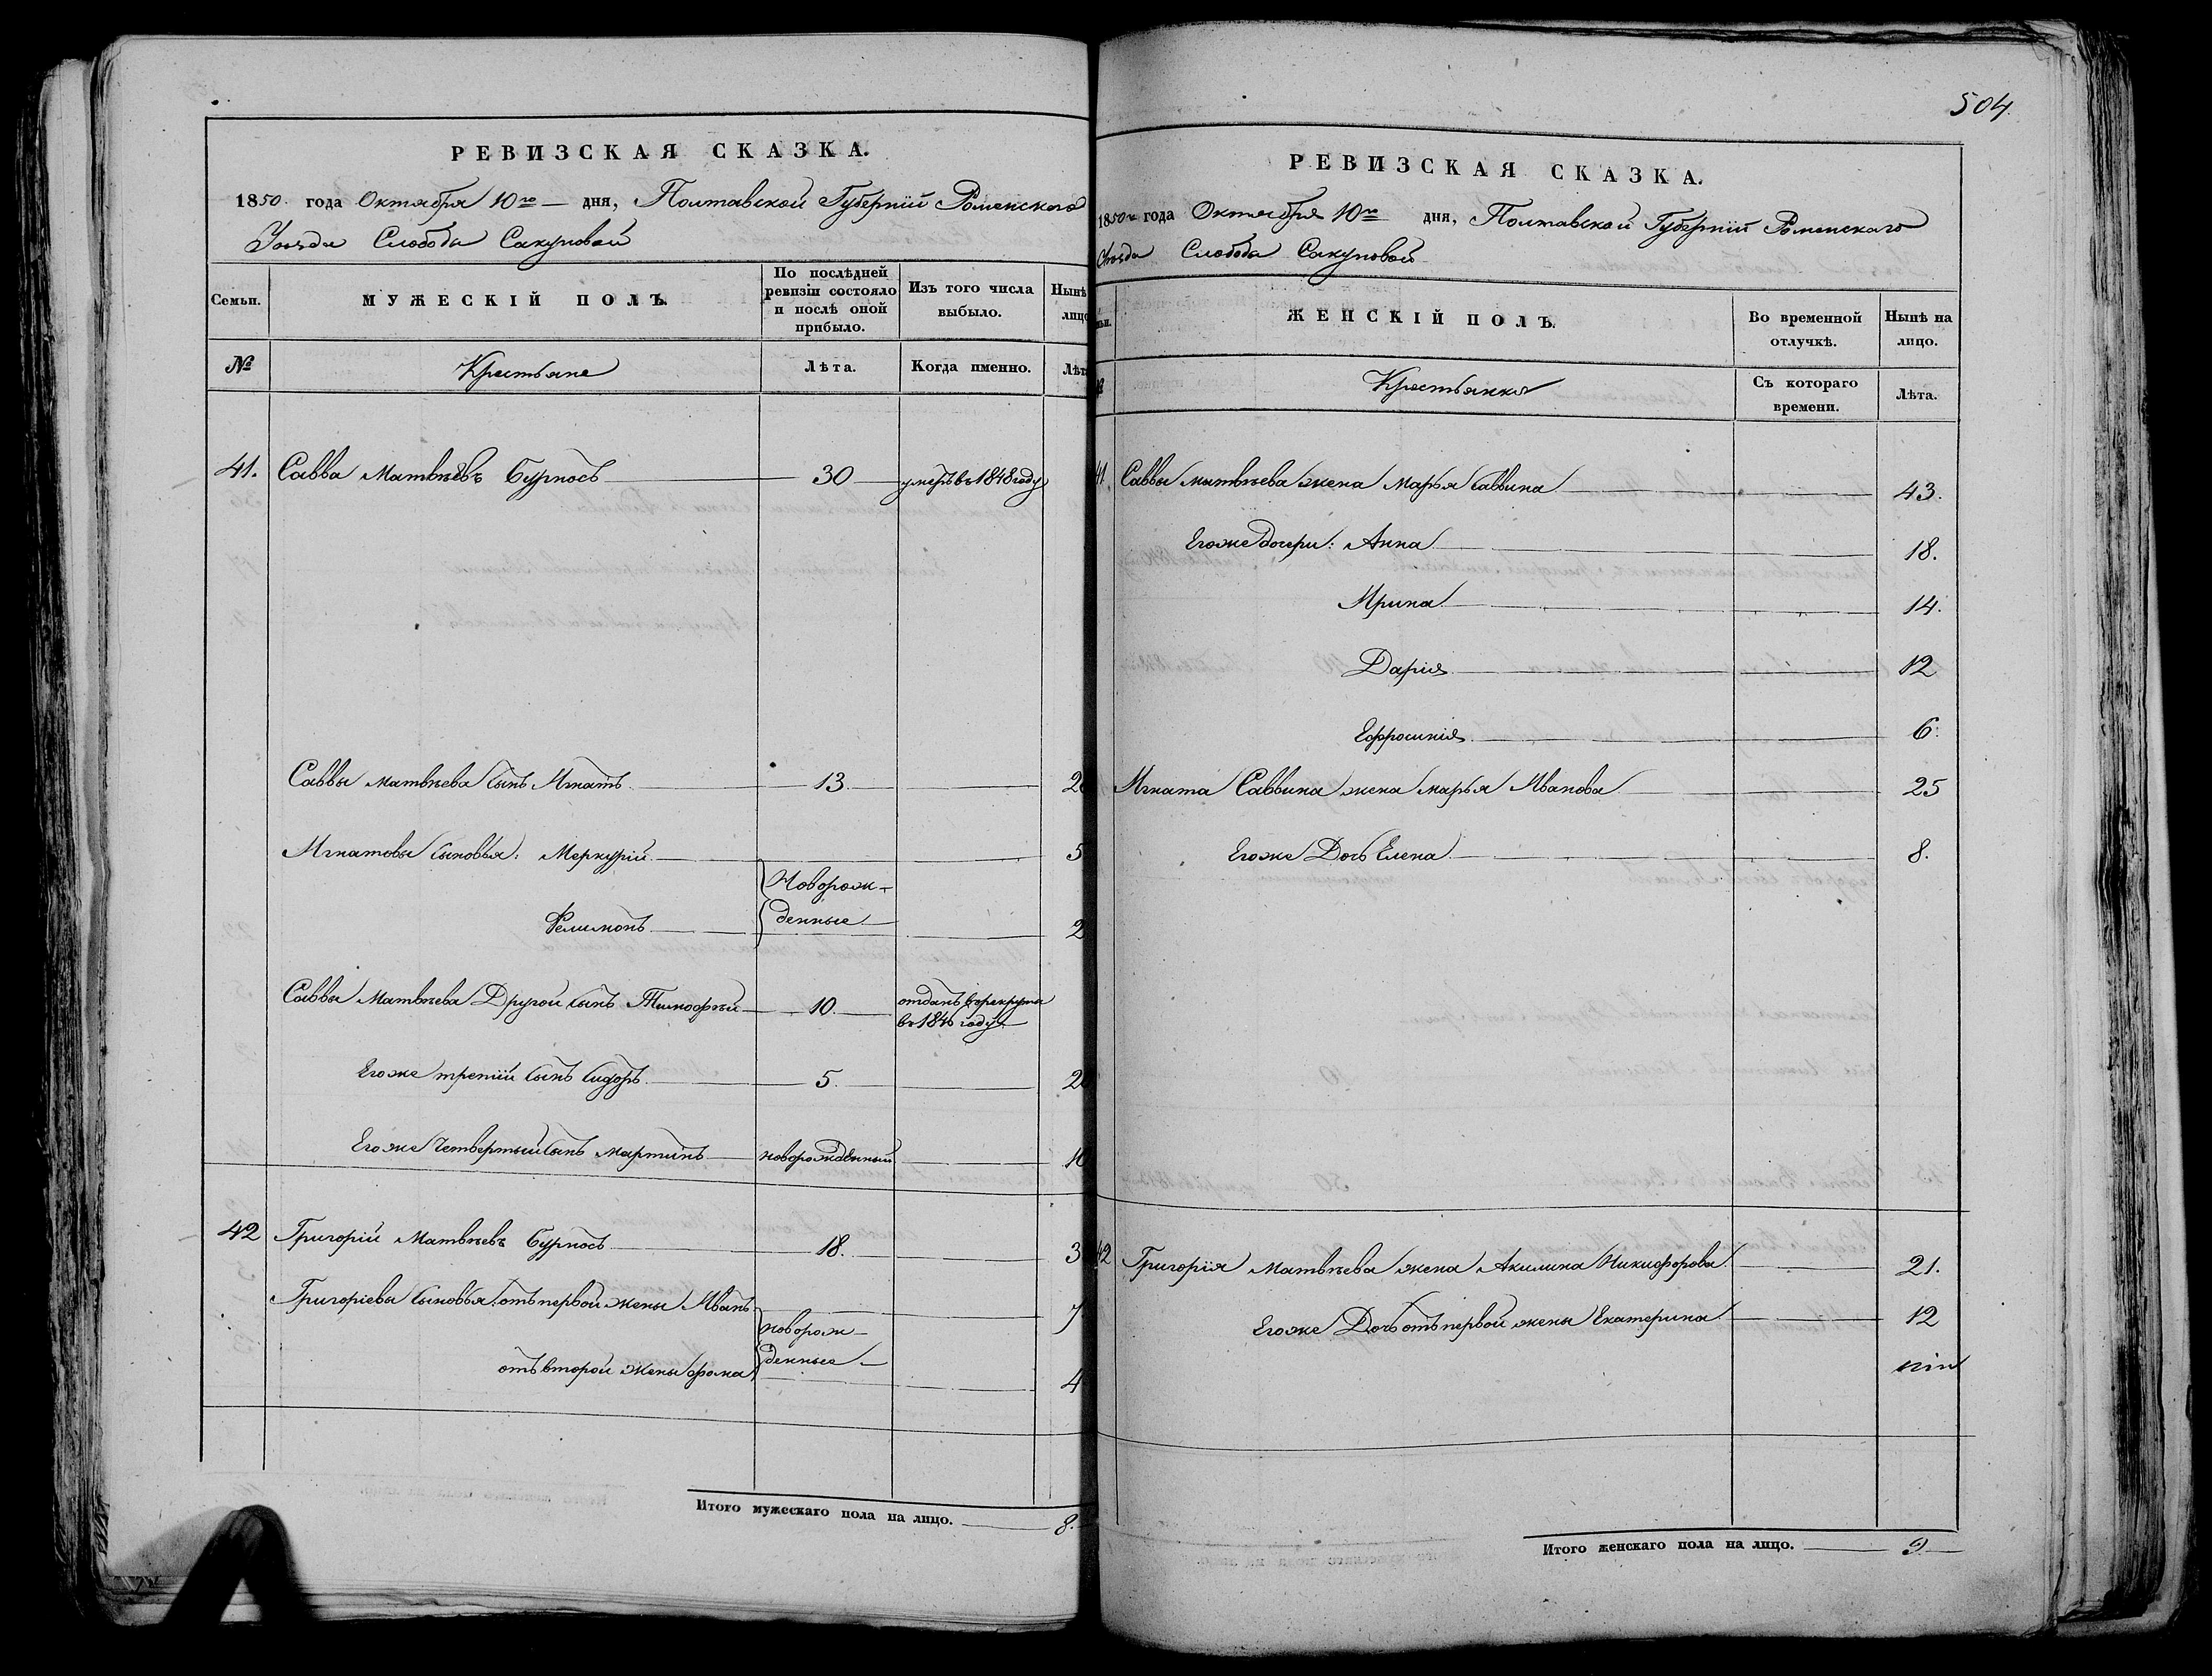 РЕВИЗСКАЯ СКАЗКА.
1850. года Октября 10го дня, Полтавской Губерніи Роменского
Уѣзда Слобода Сакуновой
Семьи.
МУЖЕСКІЙ ПОЛЪ.
По послѣдней ревизіи состояло и послѣ оной прибыло.
Изъ того числа выбыло.
Нынѣ
лицо
№
Крестьяне
Лѣта.
Когда именно.
Лѣт
41. Савва Матвѣевъ Бурносъ 30 умеръ въ 1848 году
Саввы Матвѣева сынъ Игнатъ 13 2
Игнатовы сыновья: Меркурій 5
Новорож-
денные
Филимонъ 2
Саввы Матвѣева Другой сынъ Тимофѣй 10. отданъ в рекруты
въ 1846 году
Егоже третій сынъ Сидоръ 5. 2
Егоже Четвертый сынъ Мартинъ новорожденный 10
42 Григорій Матвѣевъ Бурносъ 18. 3
Григоріевы сыновья: отъ первой жены Иванъ 7
новорож-
денные
отъ второй жены Фома 4
Итого мужескаго пола на лицо. 8.
504.
РЕВИЗСКАЯ СКАЗКА.
1850го года Октября 10го дня, Полтавской Губерніи Роменскаго
Уѣзда Слобода Сакуновой
ЖЕНСКІЙ ПОЛЪ.
Во временной отлучкѣ.
Нынѣ на лицо.
Крестьянки
Съ котораго времени.
Лѣта.
41. Саввы Матвѣева жена Марья Саввина 43.
Егоже дочери: Анна 18.
Ирина 14.
Дарія 12
Ефросинія 6.
Игната Саввина жена Марья Иванова 25
Егоже Дочь Елена 8.
42 Григорія Матвѣева жена Акилина Никифорова 21.
Егоже Дочь отъ первой жены Екатерина 12
Итого женскаго пола на лицо. 9